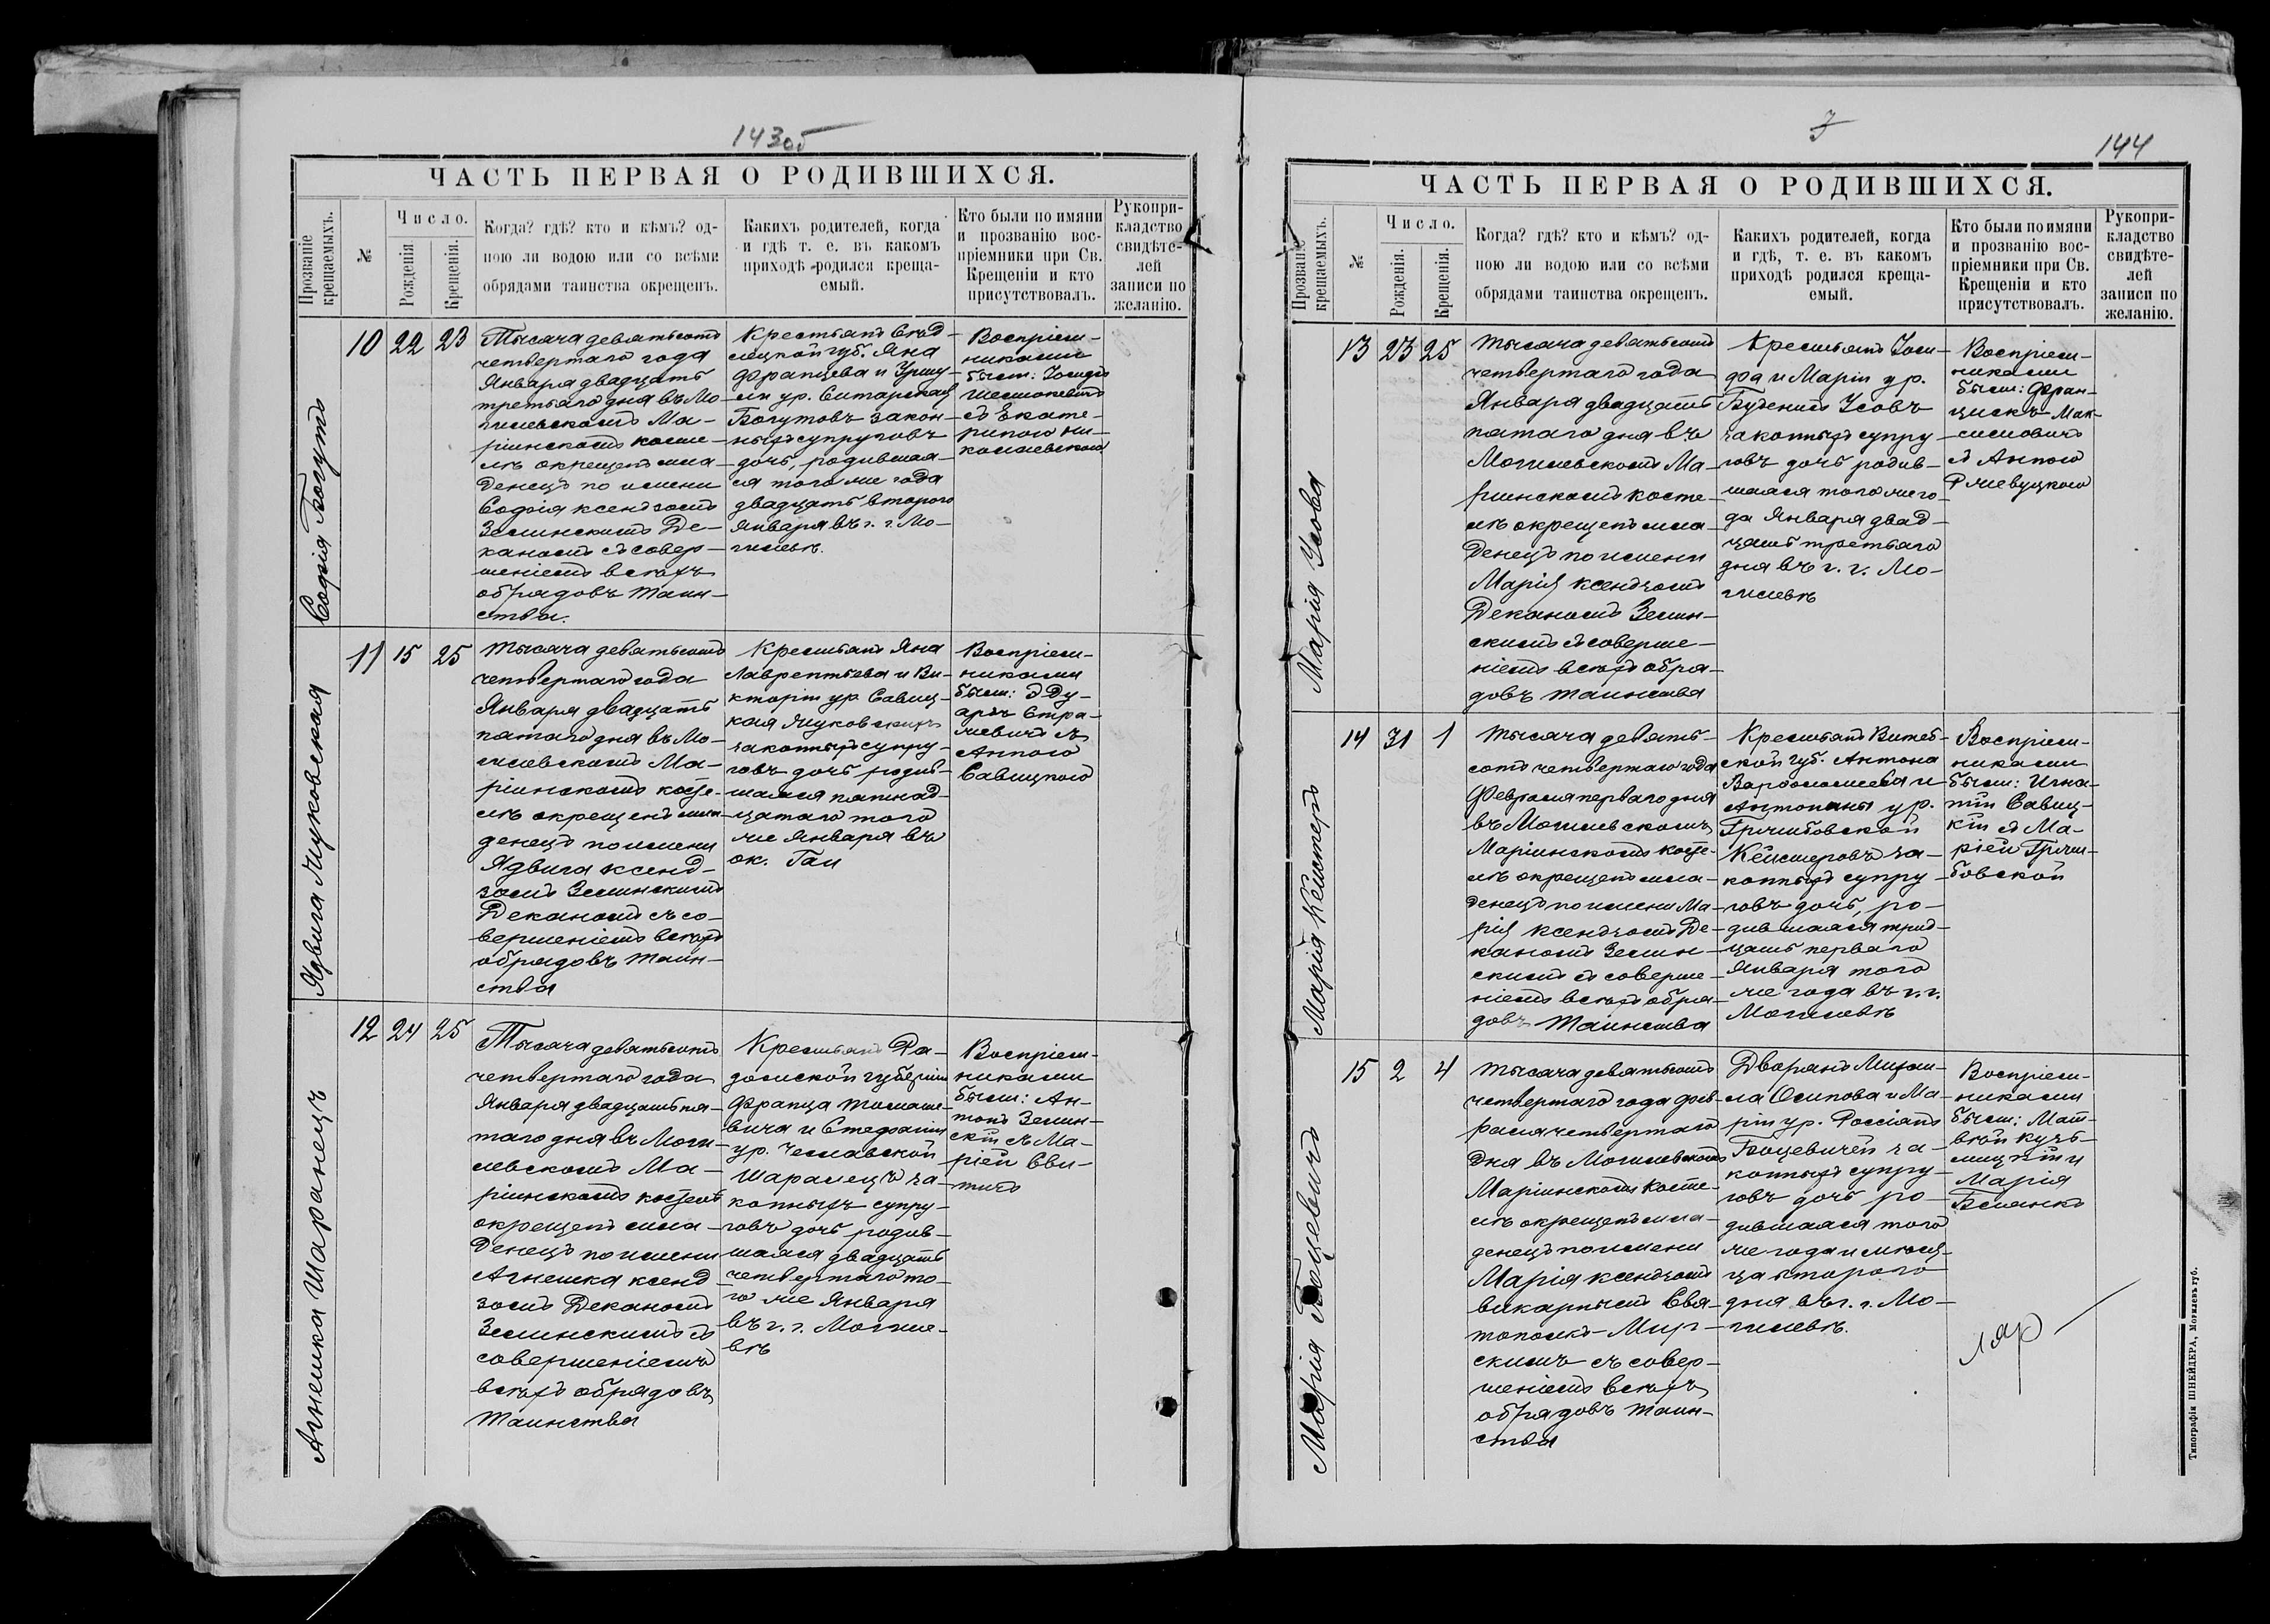 143об
ЧАСТЬ ПЕРВАЯ О РОДИВШИХСЯ.
Прозваніе крещаемыхъ.
№
Число.
Рожденія
Крещенія.
Когда? гдѣ? кто и кѣмъ? од-
ною ли водою или со всѣми
обрядами таинства окрещенъ.
Какихъ родителей, когда
и гдѣ т. е. въ какомъ
приходѣ родился креща-
емый.
Кто были по имяни
и прозванію вос-
пріемники при Св.
Крещеніи и кто
присутствовалъ.
Рукопри-
кладство
свидѣте-
лей
записи по
желанію.
Софія Богутъ
10 22 23
Тысяча девятьсотъ
четвертаго года
Января двадцать
третьяго дня въ Мо-
гилевскомъ Ма-
ріинскомъ косте-
лѣ окрещенъ мла-
денецъ по имени
Софія ксендзомъ
Землинскимъ Де-
каномъ съ совер-
шеніемъ всѣхъ
обрядовъ таин-
ства.
Крестьянъ Сѣд-
лецкой губ. Яна
Францева и Уршу-
ли ур.
Богутовъ закон-
ныхъ супруговъ
дочь, родившая-
ся того же года
двадцать второго
Января въ г. г. Мо-
гилевѣ.
Воспріем-
никами
были: Іосифъ
съ Екате-
риною Ни-
колаевскою
Ядвига Жуковская
11 15 25
Тысяча девятьсотъ
четвертаго года
Января двадцать
пятаго дня въ Мо-
гилевскомъ Ма-
ріинскомъ косте-
лѣ окрещенъ мла-
денецъ по имени
Ядвига ксенд-
зомъ Землинскимъ
Деканомъ съ со-
вершеніемъ всѣхъ
обрядовъ таин-
ства
Крестьянъ Яна
Лаврентьева и Ви-
кторіи ур. Савиц-
кая Жуковскихъ
законныхъ супру-
говъ дочь родив-
шаяся пятнад-
цатаго того
же Января въ
ок. Гаи
Воспріем-
никами
были: Эду-
ардъ Стра-
жевичъ съ
Анною
Савицкою
Агнешка Шаранецъ
12 24 25
Тысяча девятьсотъ
четвертаго года
Января двадцать пя-
таго дня въ Моги-
левскомъ Ма-
ріинскомъ костелѣ
окрещенъ мла-
денецъ по имени
Агнешка ксенд
зомъ Деканомъ
Землинскимъ съ
совершеніемъ
всѣхъ обрядовъ
таинства
Крестьянъ Ра-
домской губерніи
Франца Томаше-
вича и Стефаніи
ур. Чеславской
Шаранецъ за-
конныхъ супру-
говъ дочь родив-
шаяся двадцать
четвертаго то-
го же Января
въ г. г. Могиле-
вѣ
Воспріем-
никами
были: Ан-
тонъ Землин-
скій съ Ма-
ріей Сви-
тичъ
3
144
ЧАСТЬ ПЕРВАЯ О РОДИВШИХСЯ.
Прозваніе крещаемыхъ.
№
Число.
Рожденія.
Крещенія.
Когда? гдѣ? кто и кѣмъ? од-
ною ли водою или со всѣми
обрядами таинства окрещенъ.
Какихъ родителей, когда
и гдѣ, т. е. въ какомъ
приходѣ родился креща-
емый.
Кто были по имяни
и прозванію вос-
пріемники при Св.
Крещеніи и кто
присутствовалъ.
Рукопри-
кладство
свидѣте-
лей
записи по
желанію.
Марія Усова
13 23 25
Тысяча девятьсотъ
четвертаго года
Января двадцать
пятаго дня въ
Могилевскомъ Ма-
ріинскомъ косте-
лѣ окрещенъ мла-
денецъ по имени
Марія ксендзомъ
Деканомъ Землин-
скимъ съ соверше-
ніемъ всѣхъ обря-
довъ таинства
Крестьянъ Іоси-
фа и Маріи ур.
Усовъ
законныхъ супру
говъ дочь родив-
шаяся того же го-
да Января двад-
цать третьяго
дня въ г. г. Мо-
гилевѣ
Воспріем-
никами
были: Фран-
цискъ Мак-
симовичъ
съ Анною
Ржевуцкою
Марія Кейстеръ
14 31 1
Тысяча девять-
сотъ четвертаго года
Февраля перваго дня
въ Могилевскомъ
Маріинскомъ косте-
лѣ окрещенъ мла-
денецъ по имени Ма-
рія ксендзомъ Де-
каномъ Землин-
скимъ съ соверше-
ніемъ всѣхъ обря-
довъ таинства
Крестьянъ Витеб-
ской губ. Антона
Варфоломеева и
Антонины ур.
Кейстеровъ за-
конныхъ супру-
говъ дочь, ро-
дившаяся трид-
цать перваго
Января того
же года въ г. г.
Могилевѣ
Воспріем-
никами
были: Игна-
тій Савиц-
кій съ Ма-
ріей
Марія Боцевичъ
15 2 4
Тысяча девятьсотъ
четвертаго года фев-
раля четвертаго
дня въ Могилевскомъ
Маріинскомъ косте-
лѣ окрещенъ мла-
денецъ по имени
Марія ксендзомъ
викарнымъ Свя-
тополкъ-Мир-
скимъ съ совер-
шеніемъ всѣхъ
обрядовъ таин-
ства
Дворянъ Михаи-
ла Осипова и Ма-
ріи ур.
Боцевичей за-
конныхъ супру-
говъ дочь ро-
дившаяся того
же года и мѣся-
ца второго
дня въ г. г. Мо-
гилевѣ.
Воспріем-
никами
были: Мат-
вѣй Кузь-
мицкій и
Марія
Типографія ШНЕЙДЕРА, Могилевъ губ.